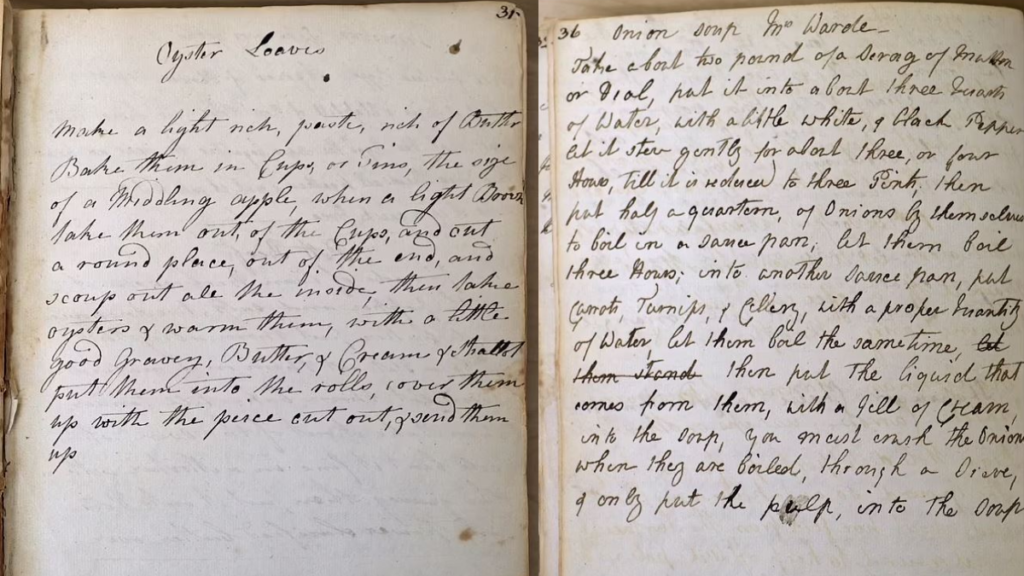 31-
Oyster Loaves
make a light rich, paste, rich of Butter
Bake them in Cups, or Tins, the size
of a Middling apple, when a light Brown
take them out, of the Cups, and cut
a round place, out of the end, and
scoup out all the inside, then take
oysters & warm them, with a little
good Gravey, Butter, & Cream & shallot
put them into the rolls, cover them
up with the peice cut out, & send them
up
36 Onion soup Mrs Warde-
Take about two pound of a Scrag of Mutton
or Veal, put it into about three Quarts
of Water, with a little white, & black Pepper
let it stew gently for about three, or four
Hours, till it is reduced to three Pints, then
put half a quartern, of Onions by themselves
to boil in a sauce pan, let them boil
three Hours; into another sauce pan, put
Carrots, Turnips, & Cellery, with a proper Quantity
of Water, let them boil the same time, let
them stand then put the liquid that
comes from them, with a Jill of Cream,
into the soup, You must crush the Onions
when they are boiled, through a Sieve,
& only put the pulp, into the soup